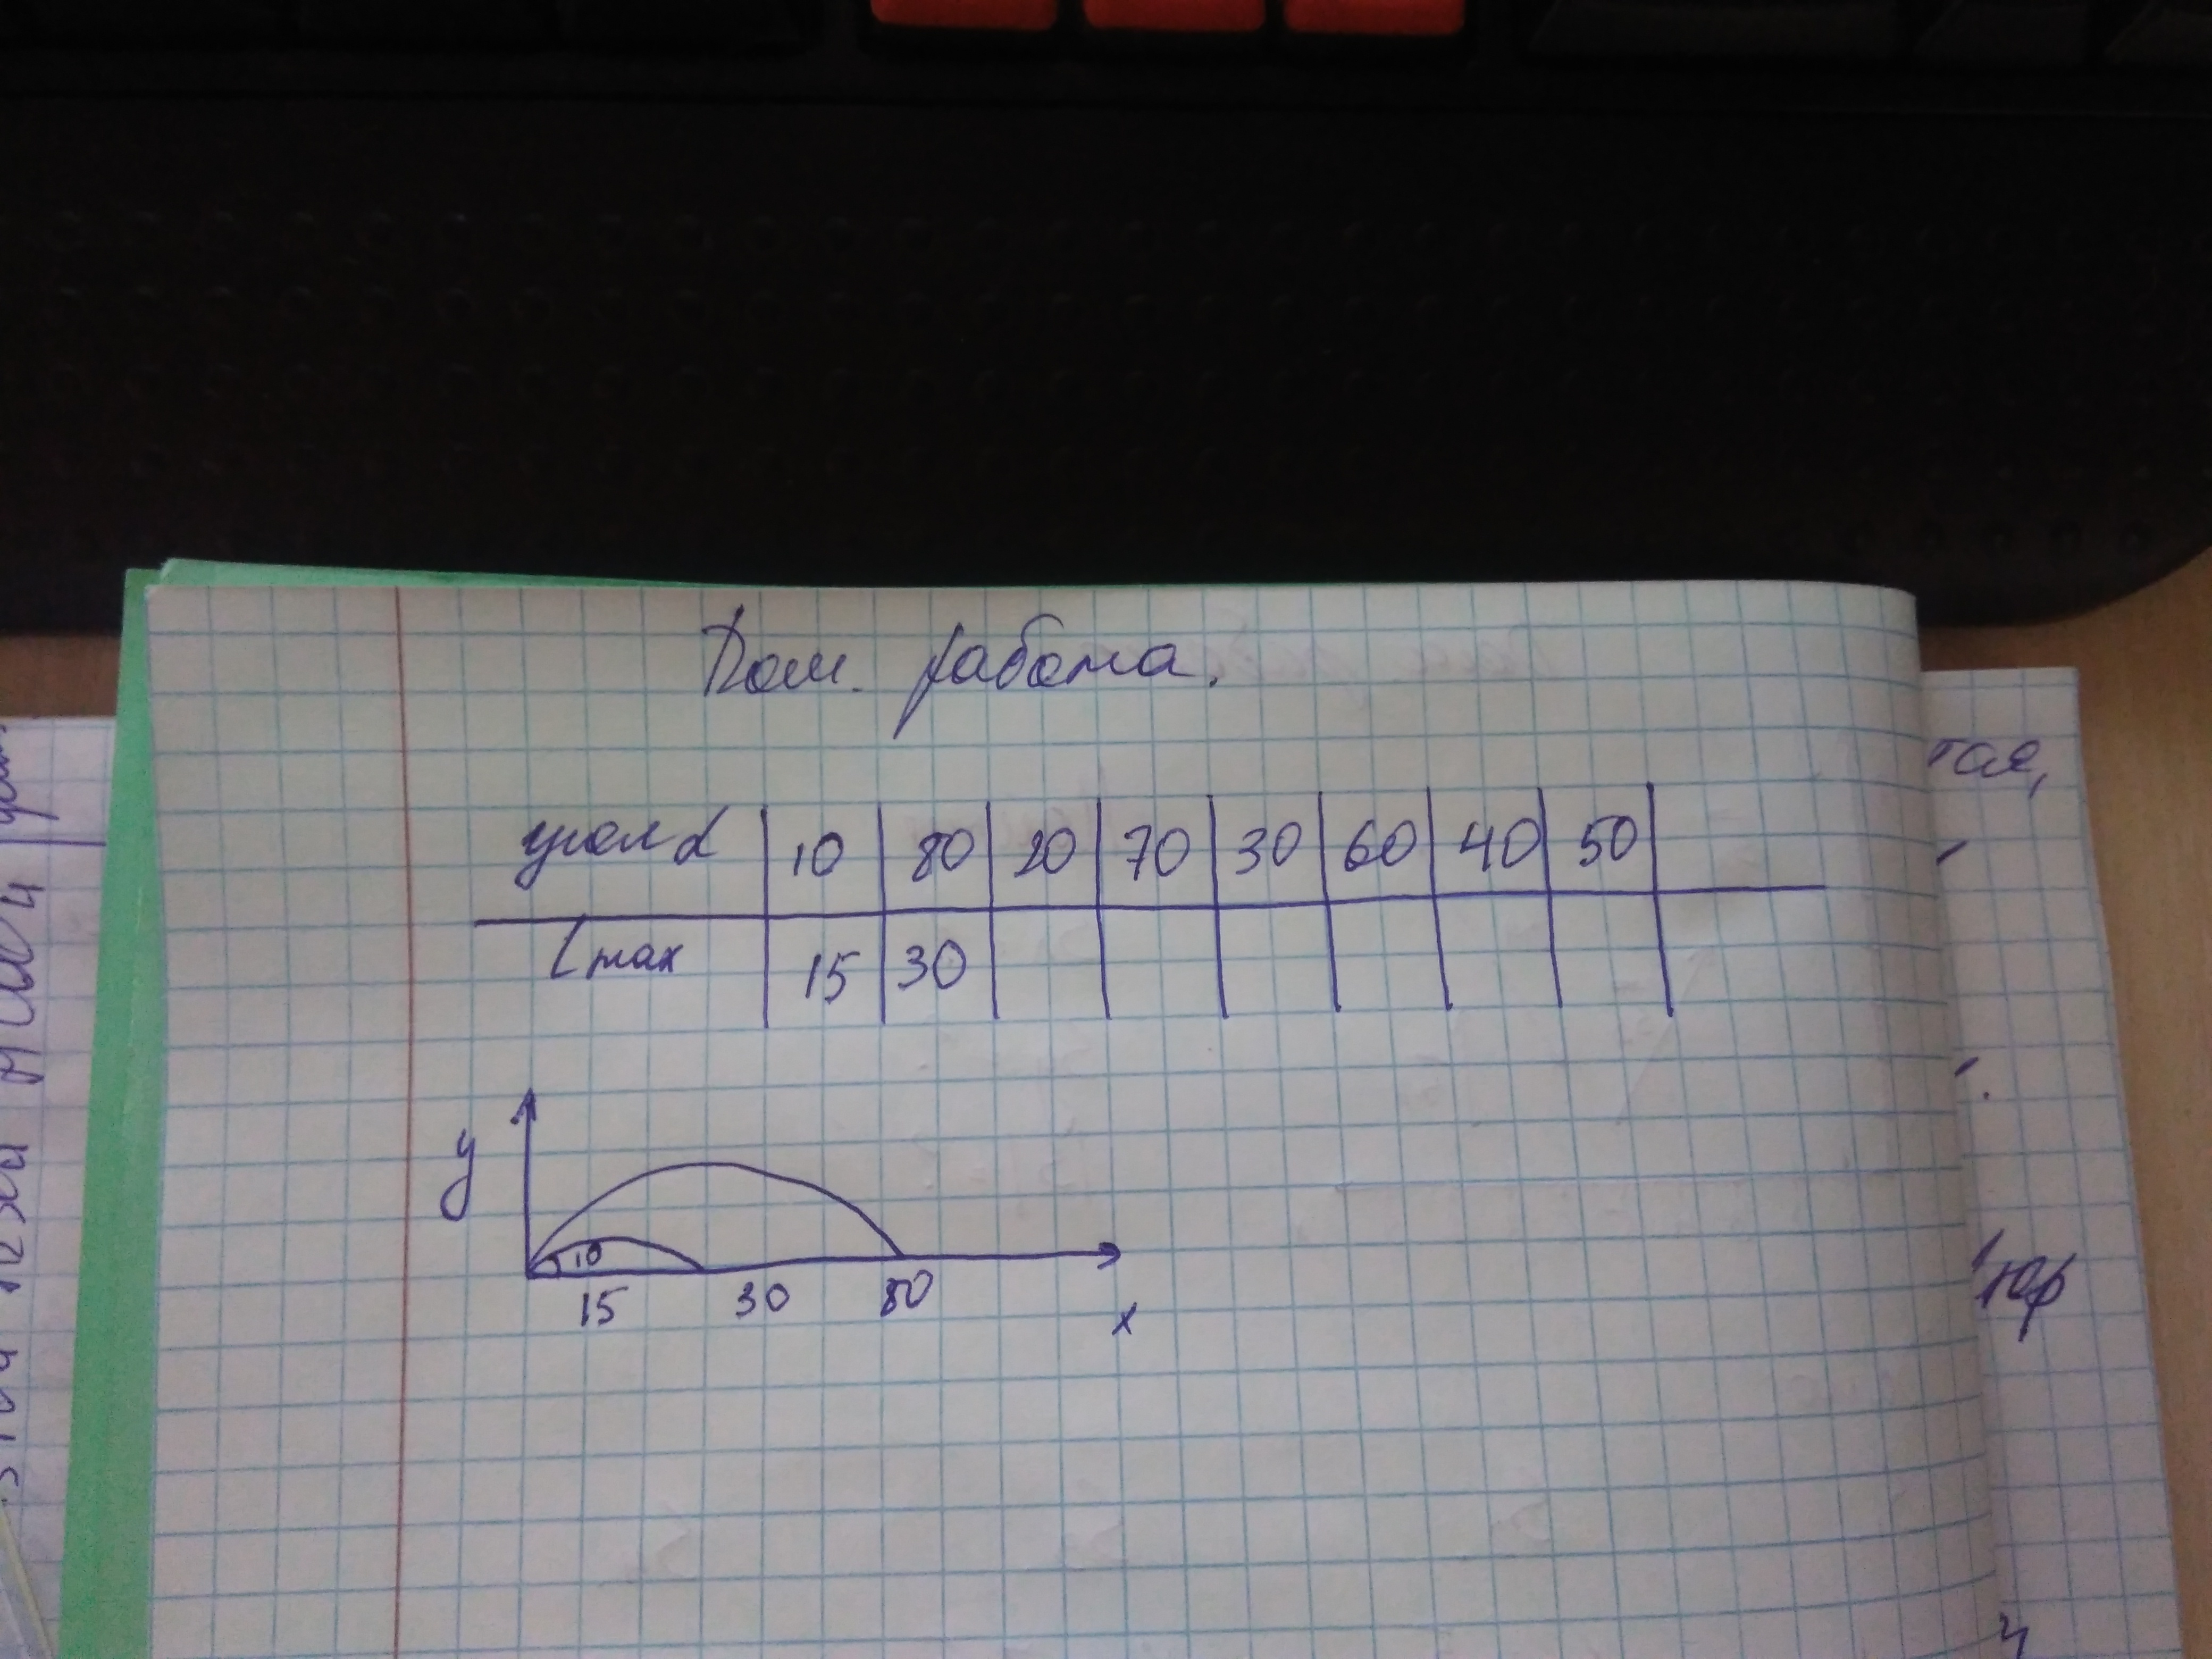 Дом. работа.
угол α 10 80 20 70 30 60 40 50
lmax 15 30
y
10
15 30 80
x
тая,